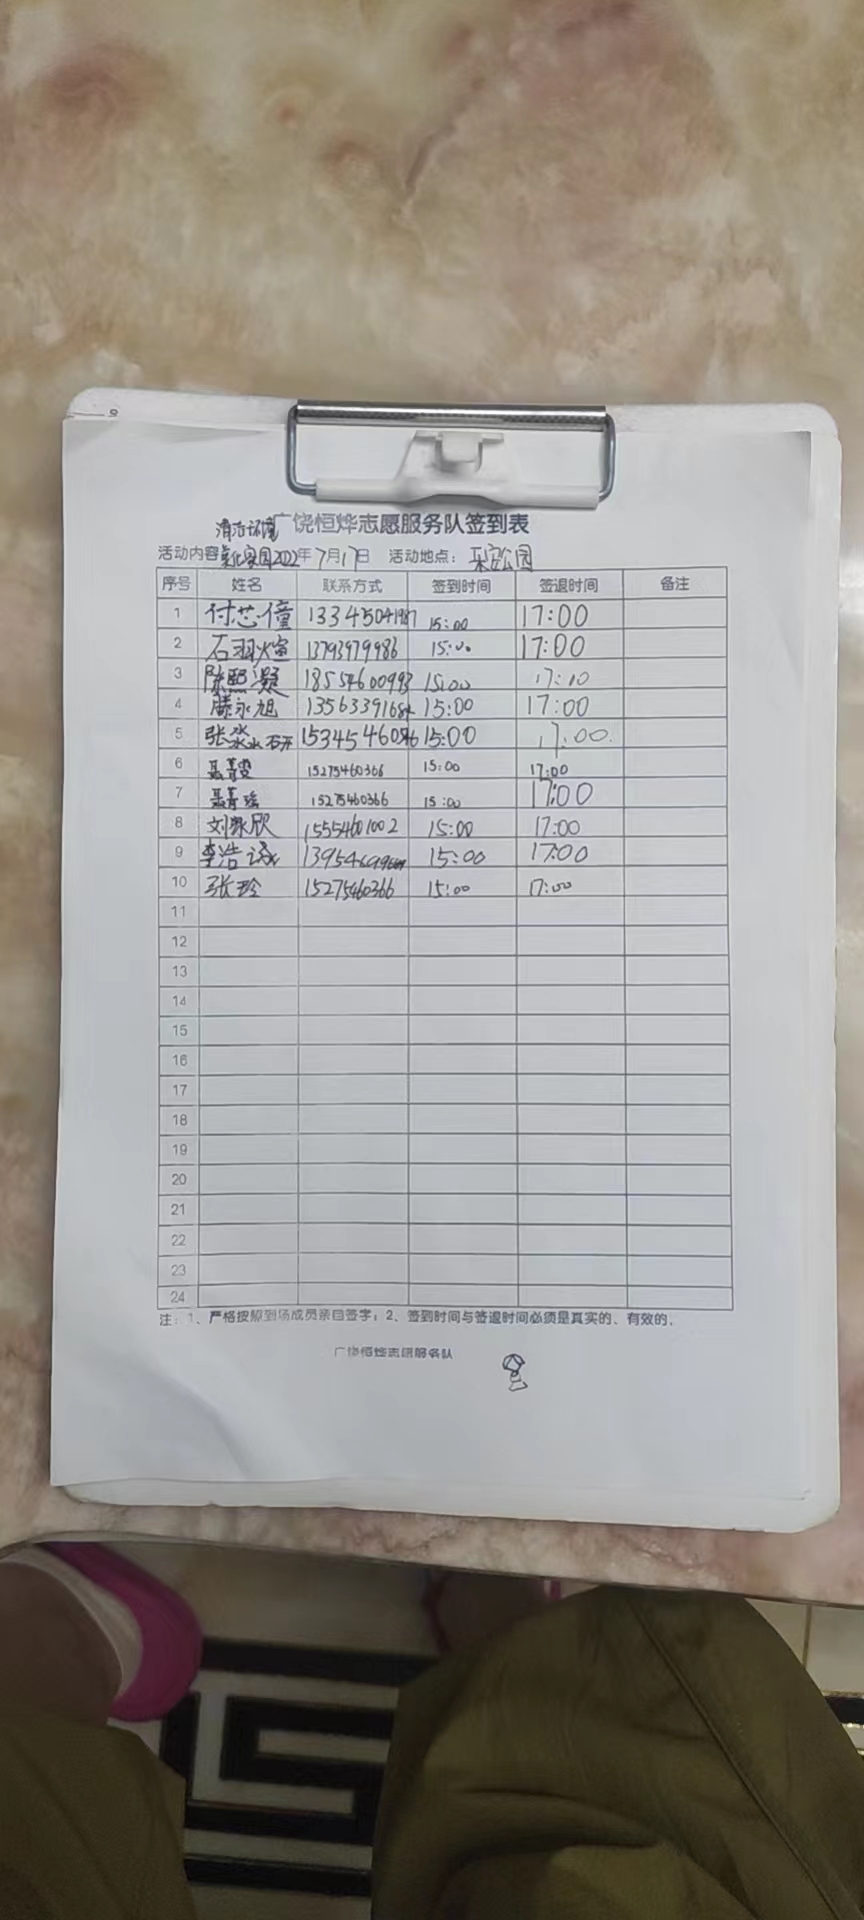 清洁环境
广饶恒烨志愿服务队签到表
活动内容 美化家园 2022年7月17日 活动地点：乐安公园
序号 姓名 联系方式 签到时间 签退时间 备注
1 付芯僮 13345041987 15:00 17:00
2 石羽煊 13793979986 15:00 17:00
3 陈熙凝 18554600993 15:00 17:10
4 滕永旭 1356339168 15:00 17:00
5 张淼 15345460 15:00 17:00
6 聂菁雯 15275460366 15:00 17:00
7 聂菁瑶 15275460366 15:00 17:00
8 刘 欣 15554601002 15:00 17:00
9 李浩诚 139546 15:00 17:00
10 张玲 15275460366 15:00 17:00
11
12
13
14
15
16
17
18
19
20
21
22
23
24
注：1、严格按照到场成员亲自签字；2、签到时间与签退时间必须是真实的、有效的。
广饶恒烨志愿服务队